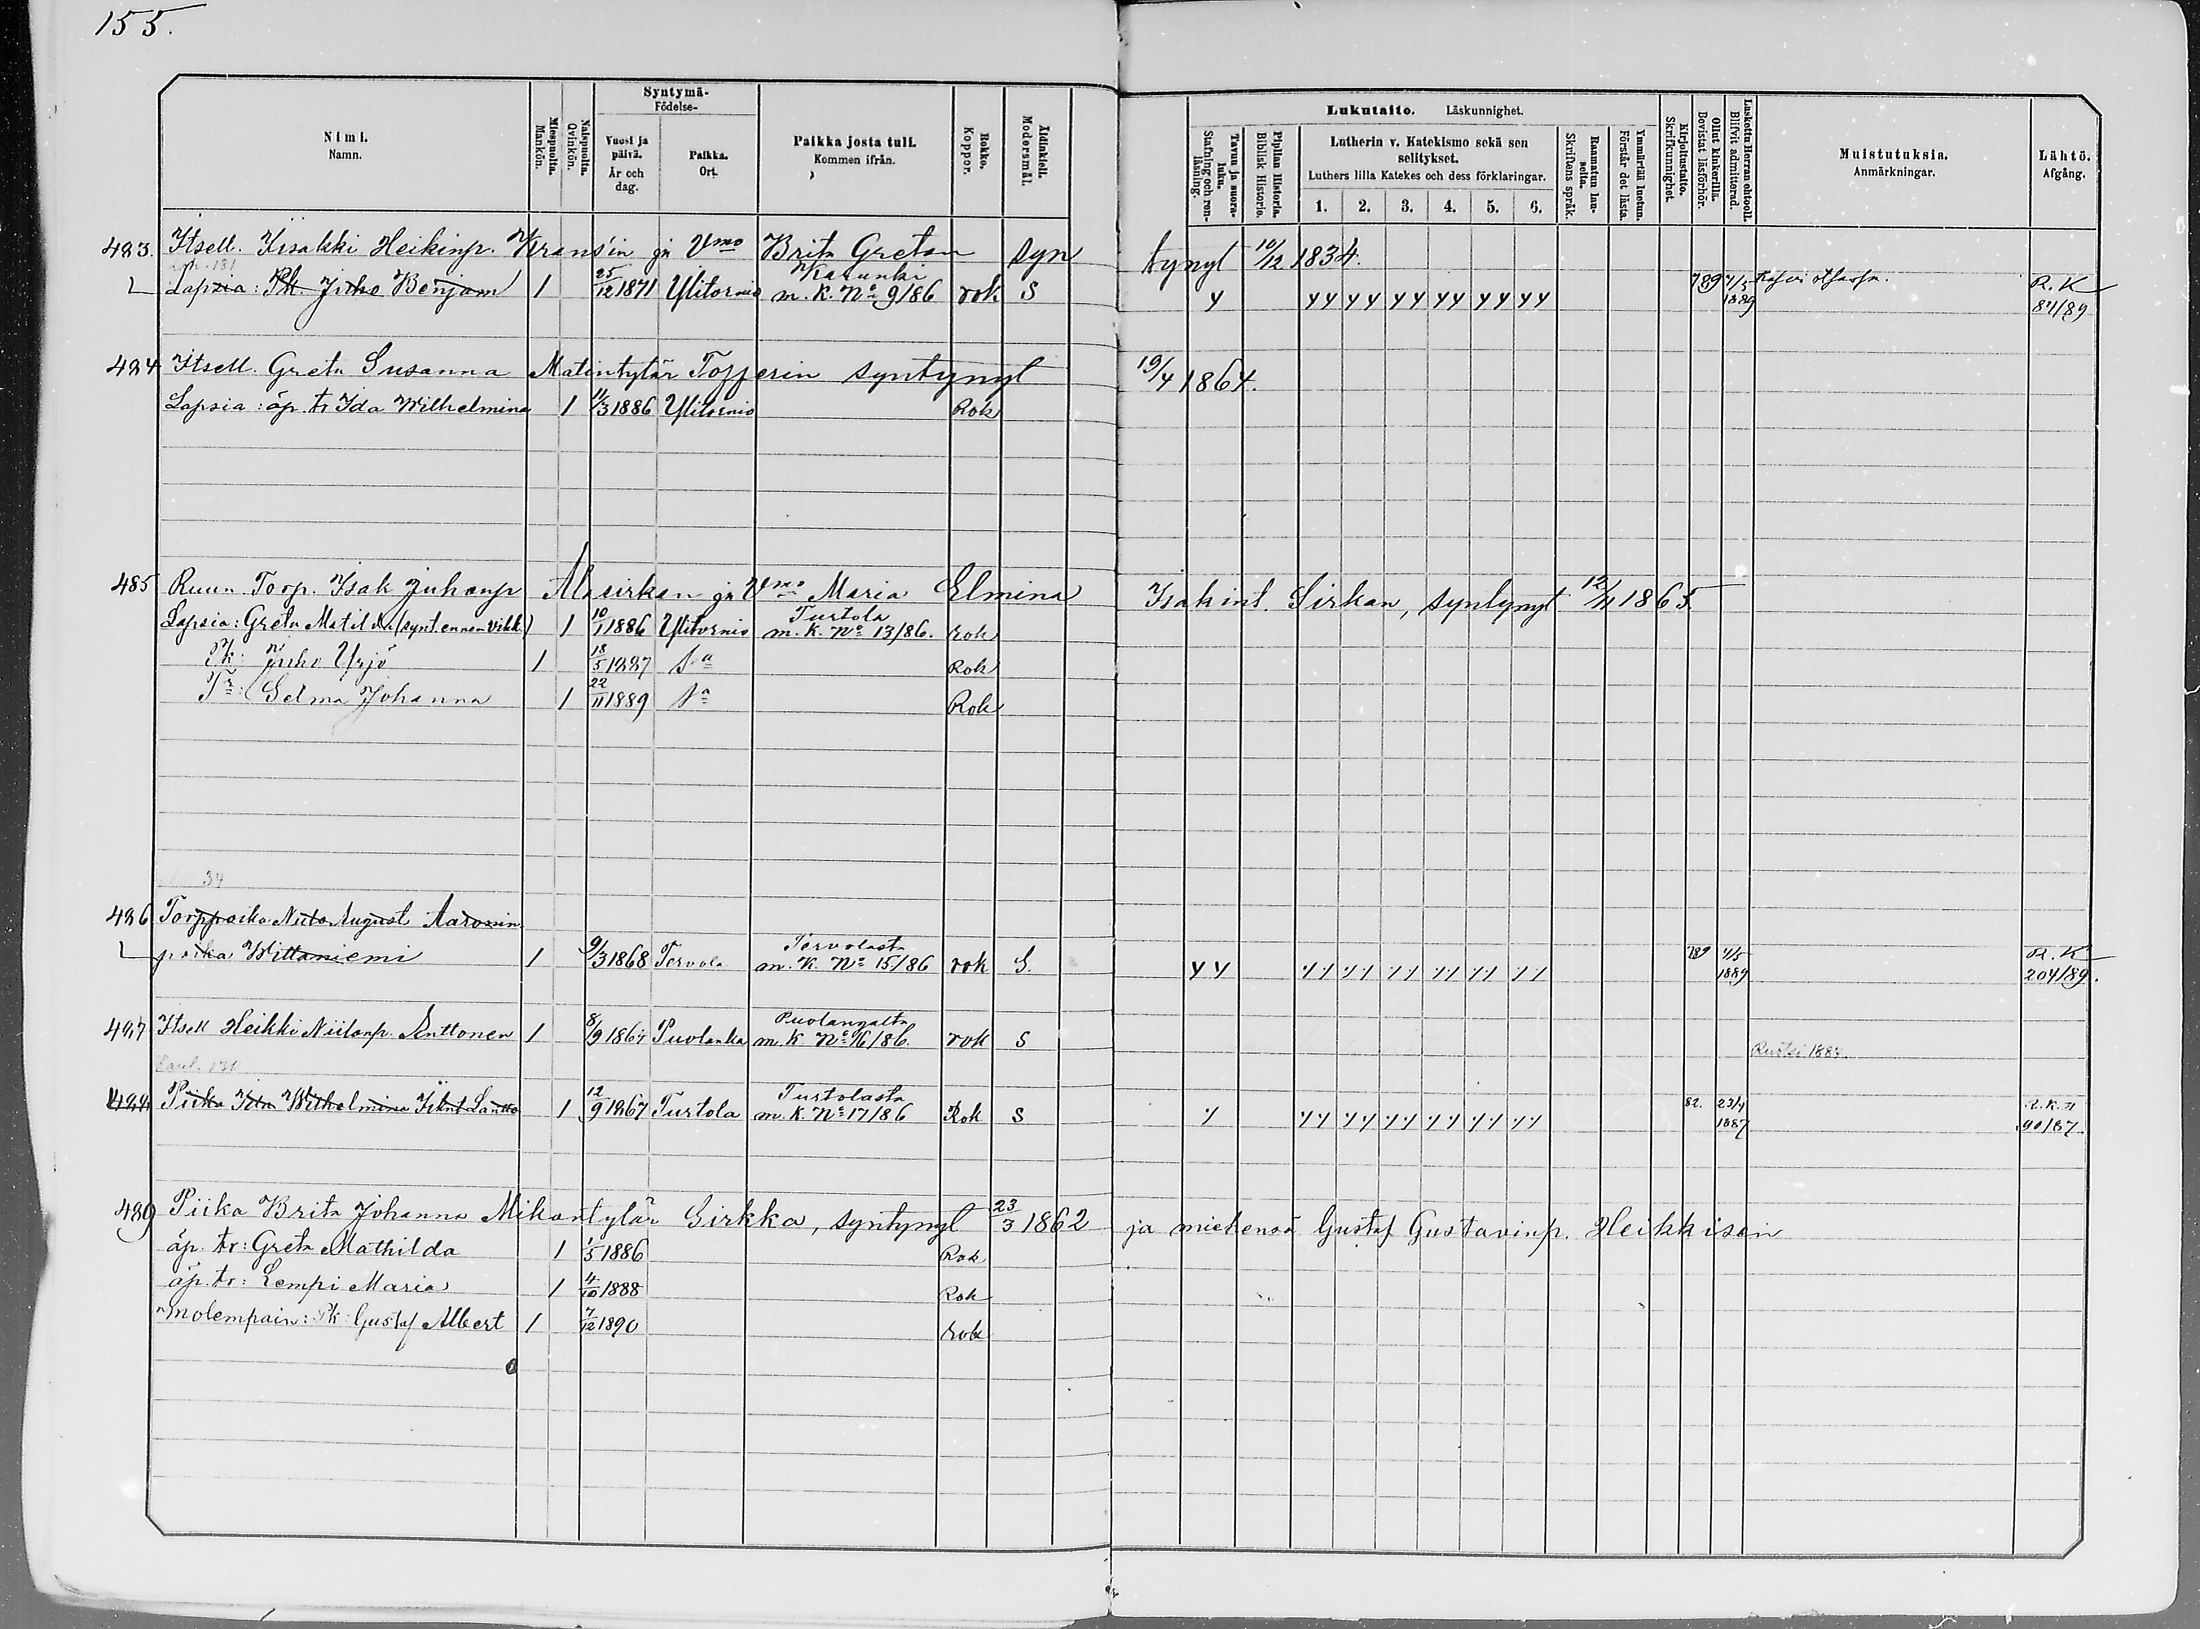 155.
Nimi.
Namn.
Miespuolia.
Mankön.
Naispuolia.
Qvinkön.
Syntymä-
Födelse-
Vuosi ja päivä.
År och dag.
Paikka.
Ort.
Paikka josta tuli.
Kommen ifrån.
Rokko.
Koppor.
Äidinkieli.
Modersmål.
Lukutaito. Läskunnighet.
Tavun ja suora-luku.
Stafning och ren-läsning.
Piplian Historia.
Biblisk Historie.
Lutherin v. Katekismo sekä sen selitykset.
Luthers lilla Katekes och dess förklaringar.
1. 2. 3. 4. 5. 6.
Raamatun lau-seita.
Skriftens språk.
Ymmärtää luetun.
Förstår det lästa.
Kirjoitustaito.
Skrifkunnighet.
Ollut kinkerillä.
Bevistat läsförhör.
Laskettu Herran ehtooll.
Blifvit admitterad.
Muistutuksia.
Anmärkningar.
Lähtö.
Afgång.
483. Itsell. Iisakki Heikinp. Krans'in ja Vmo Brita Gretan syn tynyt 10/12 1834.
131
Lapsia: Pk. Juho Benjam 1 25/12 1871 Ylitornio Karunki m. K. No 9/86 rok S y yy yy yy yy yy yy 789 4/5 1889 R. K 84/89
484 Itsell. Greta Susanna Matintytär Topperin syntynyt 19/4 1864.
Lapsia: äp. tr Ida Wilhelmina 1 11/3 1886 Ylitornio Rok
485 Ruun Torp. Isak Juhanp Alasirkan ja Vmo Maria Elmina Isakint. Sirkan, syntynyt 12/11 1865
Lapsia: Greta Matilda (synt. ennen vihk.) 1 10/1 1886 Ylitornio Turtola m. K. No 13/86. rok
Pk: Juho Yrjö 1 18/5 1887 Sa Rok
Tr: Selma Johanna 1 22/11 1889 Sa Rok
34
486 Torppoika Niilo August Aaronin
poika Wittaniemi 1 9/3 1868 Tervola Tervolasta m. K. No 15/86 rok S. yy yy yy yy yy yy yy 789 4/5 1889 R. K 204/89.
487 Itsell Heikki Niilonp. Anttonen 1 8/9 1864 Puolanka Puolangalta m. K. No 16/86. rok S
488 Piika Ida Wilhelmina Lantto 1 12/9 1867 Turtola Turtolasta m. K. No 17/86 Rok S y yy yy yy yy yy yy 82. 23/4 1887 R. K. 90/87.
489 Piika Brita Johanna Mikantytär Sirkka, syntynyt 23/3 1862 ja miehensä Gustaf Gustavinp. Heikkisen
äp. tr: Greta Mathilda 1 1/5 1886 Rok
äp. tr: Lempi Maria 1 4/10 1888 Rok
Molempain: Pk: Gustaf Albert 1 7/12 1890 rok